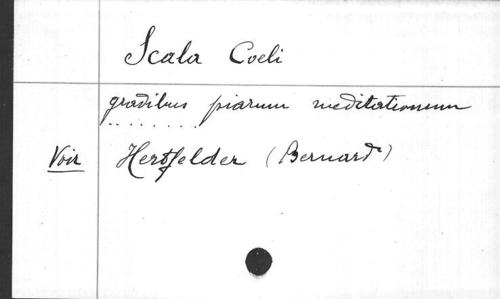 Scala Coeli
gradibus piarum meditationum
. . . . . . .
Voir Hertfelder (Bernard)